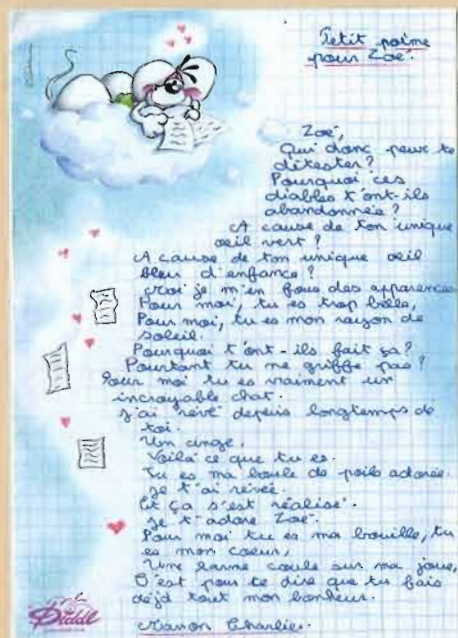 Petit poème
pour Zoé.
Zoé,
Qui donc peux te
détester?
Pourquoi ces
diables t'ont-ils
abandonnée?
A cause de ton unique
œil vert?
A cause de ton unique œil
bleu d'enfance?
Moi je m'en fous des apparences
Pour moi, tu es trop belle,
Pour moi, tu es mon rayon de
soleil.
Pourquoi t'ont-ils fait ça?
Pourtant tu ne griffe pas?
Pour moi tu es vraiment un
incroyable chat.
J'ai rêvé depuis longtemps de
toi.
Um ange,
Voilà ce que tu es.
Tu es ma boule de poils adorée.
Je t'ai rêvée.
Et ça s'est réalisé.
Je t'adore Zoé.
Pour moi tu es ma bouille, tu
es mon coeur,
Une larme coule sur ma joue,
C'est pour te dire que tu fais
déjà tout mon bonheur.
Manon Charlier.
Diddl